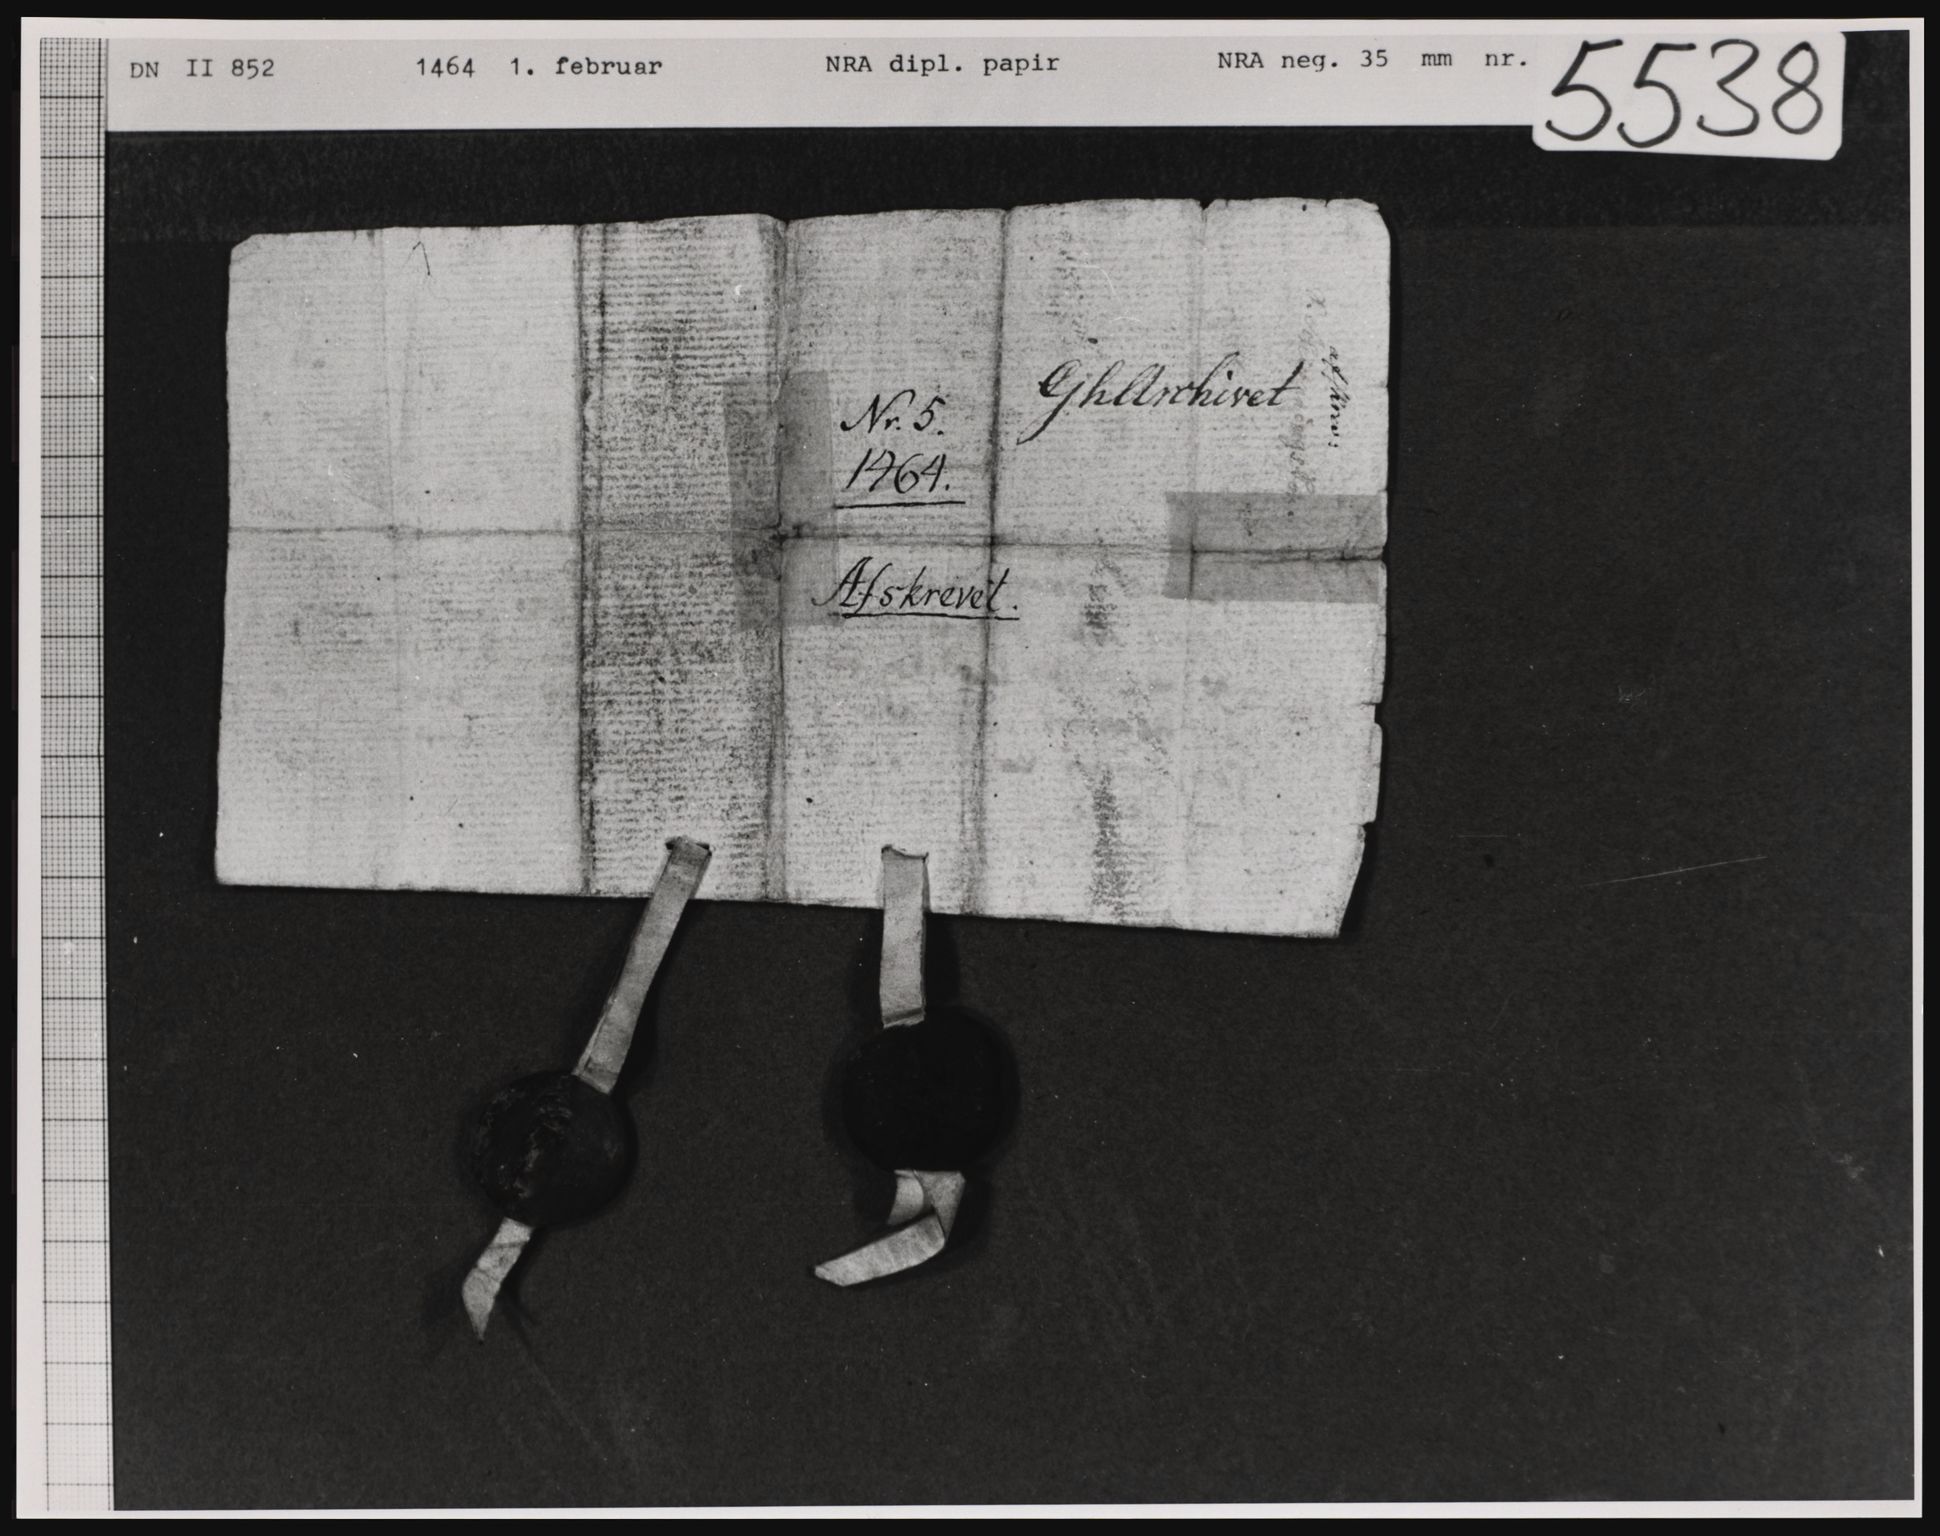 DN II 852 1464 1. februar NRA dipl. papir NRA neg. 35 mm nr. 5538
GhlArchivet
Nr. 5.
1464.
Afskrevet.